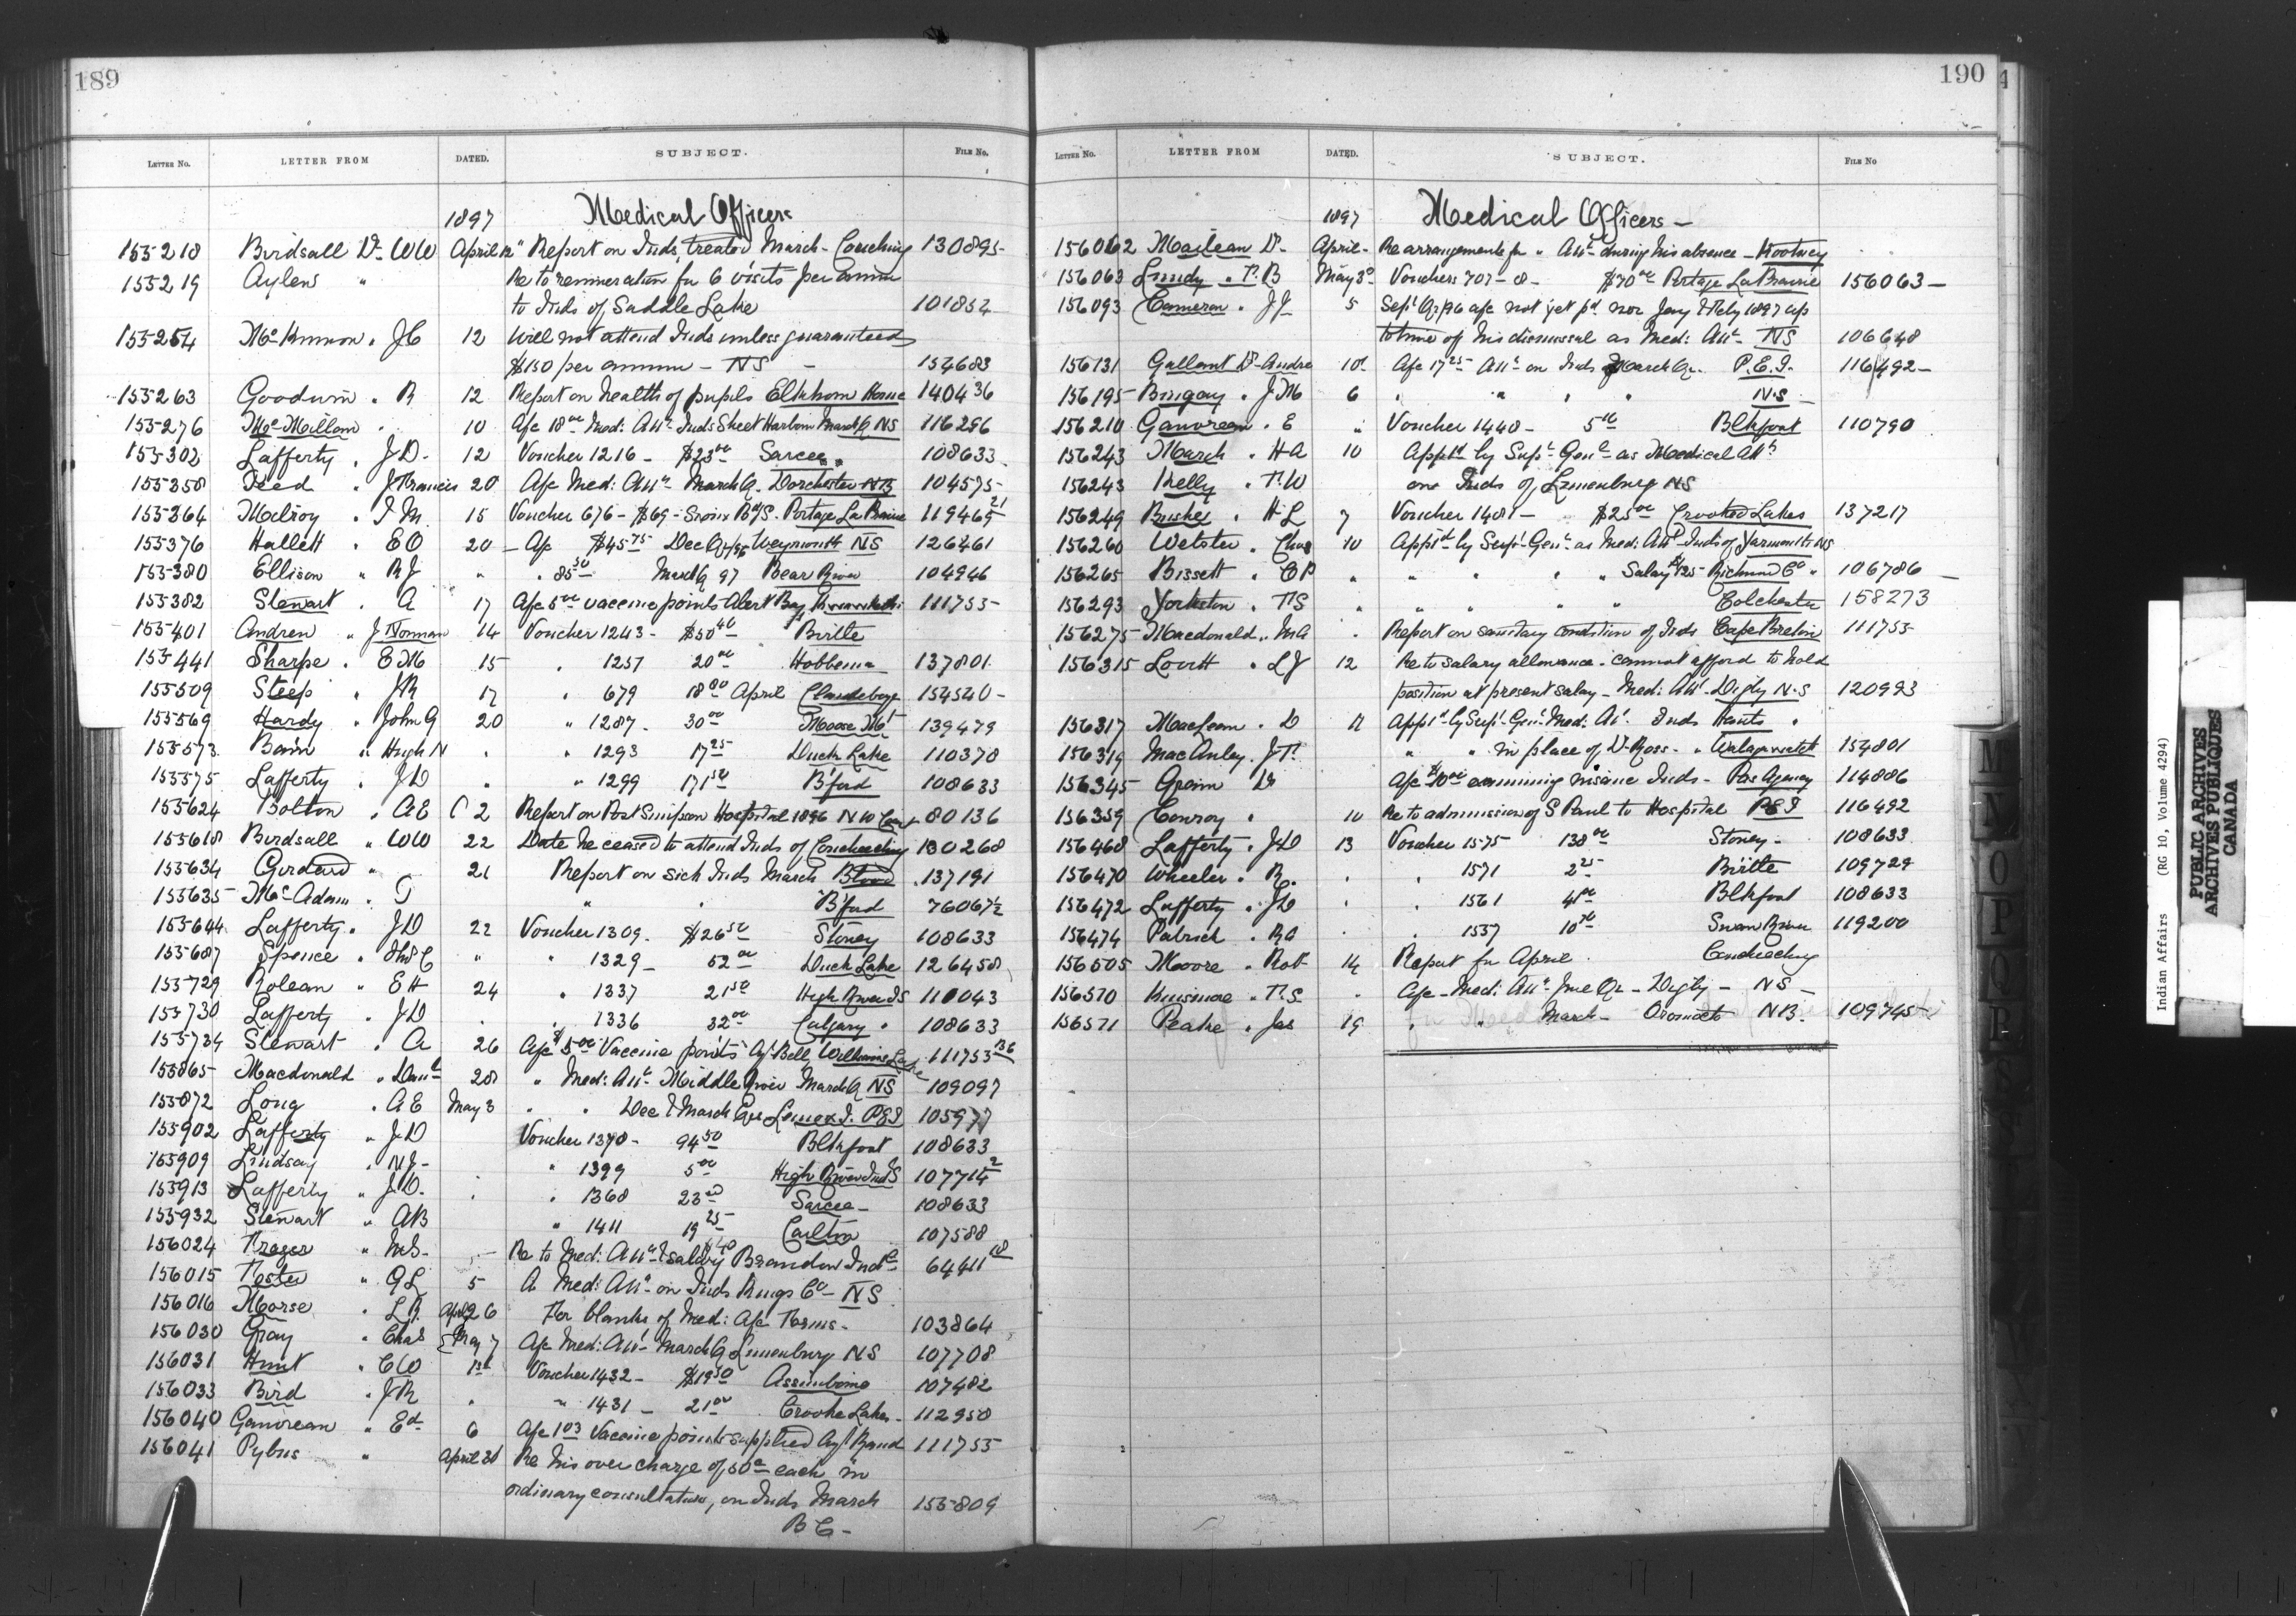 189
LETTER NO. LETTER FROM DATED. SUBJECT. FILE NO.
1897 Medical Officers
155218 Birdsall Dr WW April 12 " Report on Inds, treated March - Couching 130895
155219 Aylen " Re to remuneration for 6 visits per annum
to Inds of Saddle Lake 101852
155254 McKinnon " J C 12 Will not attend Inds unless guaranteed
$150 per annum - NS - 154683
155263 Goodwin " R 12 Report on health of pupils Elkhorn Home 140436
155276 McMillan " 10 A/c 18 00 Med: Att. Inds Sheet Harbour March Q NS 116296
155302 Lafferty " J D - 12 Voucher 1216 - $23 00 Sarcee 108633
155358 Teed " J Francis 20 A/c Med: Att. March Q. Dorchester NB 104575
155364 Milroy " T M. 15 Voucher 676 - $69 - Sioux B'd'g S. Portage La Prairie 119465 21
155376 Hallett " E O 20 - A/c $45 75 Dec Q/96 Weymouth NS 126461
155380 Ellison " R J " " 85 50 March Q 97 Bear River 104946
155382 Stewart " A 17 A/c 5 00 vaccine points Alert Bay 111755
155401 Andrew " J Norman 14 Voucher 1243 - $50 40 Birtle
155441 Sharpe " E M 15 " 1257 20 00 Hobbema 137801
155509 Steep " J R 17 " 679 18 00 April Clandeboye 154540 -
155569 Hardy " John G 20 " 1287 - 30 00 Moose Mt 139479
155573 Bain " Hugh N " " 1293 17 25 Duck Lake 110378
155575 Lafferty " J D " " 1299 171 50 B'ford 108633
155624 Bolton " A E 2 Report on Port Simpson Hospital 1896 N W Coast 80136
155618 Birdsall " WW 22 Date he ceased to attend Inds of Couchiching 130268
155634 Girdard " 21 Report on sick Inds March Blood 137191
155635 McAdam " T " " B'ford 76067½
155644 Lafferty " J D 22 Voucher 1309. $26 50 Stoney 108633
155687 Spence " " " 1329 - 52 00 Duck Lake 126458
155729 Rolean " E H 24 " 1337 21 50 High River I S 110043
155730 Lafferty " J D " " 1336 32 00 Calgary " 108633
155734 Stewart " A 26 A/c $5 00 Vaccine points Agt Bell Williams Lake 111753 136
155865 Macdonald " Danl 28 " Med: Att. Middle River March Q NS 109097
155872 Long " A E May 3 " " Dec & March Qrs Lennox I. PEI 105977
155902 Lafferty " J D Voucher 1390 - 94 50 Blkfoot 108633
155909 Lindsay " N J - " 1399 5 00 High River Ind S 107714 2
155913 Lafferty " J D. " " 1368 23 00 Sarcee - 108633
155932 Stewart " AB " 1411 19 25 Carlton 107588
156024 Fraser " M S - Re to Med: Att. & salary Brandon Ind S 64411 18
156015 Foster " G L 5 A Med: Att. on Inds Kings Co - NS
156016 Morse " L R April 26 For blanks of Med: A/c Forms - 103864
156030 Gray " Chas May 7 A/c Med: Att. March Q Lunenburg NS 107708
156031 Hunt " C W 1st Voucher 1432 - $19 50 Assiniboine 107482
156033 Bird " J R " " 1431 - 21 00 Crooke Lakes - 112950
156040 Gauvreau " Ed 6 A/c 103 Vaccine points supplied Agt Band 111755
156041 Pybus " April 30 Re his over charge of 50 c each in
ordinary consultations, on Inds March 155809
B C -
190
LETTER NO. LETTER FROM DATED. SUBJECT. FILE NO
1897 Medical Officers -
156062 Maclean Dr - April - Re arrangements for " Att. during his absence - Kootenay
156063 Lundy " F. B May 3d Vouchers 707 - 8 - $70 00 Portage La Prairie 156063 -
156093 Cameron " J J 5 Sept Qr/96 a/c not yet pd nor Jany & Feby 1897 up
to time of his dismissal as Med: Att. NS 106648
156131 Gallant Dr Andre 10 A/c 17 25 Att. on Inds March Qr. P.E.I. 116492 -
156195 Bingay " J M 6 " " " " N.S -
156210 Gauvreau " E " Voucher 1440 - 5 00 Blkfoot 110790
156243 March " H A 10 Appt'd by Supt Genl as Medical Att.
156243 Kelly " F. W on Inds of Lunenburg NS
156249 Bushe " H L 7 Voucher 1481 - $25 00 Crooked Lakes 137217
156260 Webster " Chas 10 Appt'd by Supt Genl as Med: Att. Inds of Yarmouth NS
156265 Bissett " C P " " " " " Salary $125 - Richmond Co " 106786 -
156293 Yorkston " F S " " " " " Colchester 158273
156275 Macdonald " M A " Report on sanitary condition of Inds Cape Breton 111755
156315 Lovitt " L J 12 Re to salary allowance - cannot afford to hold
position at present salary - Med: Att. Digby N.S 120993
156317 MacLean " D 11 Appt'd by Supt Genl Med: At. Inds Hants "
156319 MacAuley " J F. " " in place of Dr Ross - " Whycocomagh 154801
156345 Dr A/c $10 00 examining insane Inds - Pas Agency 114886
156359 Conroy " 10 Re to admission of S Paul to Hospital PEI 116492
156468 Lafferty " J D 13 Voucher 1575 138 00 Stoney - 108633
156470 Wheeler " R. " " 1571 2 25 Birtle 109729
156472 Lafferty " J D " " 1561 41 00 Blkfoot 108633
156474 Patrick " " " 1557 10 Swan River 119200
156505 Moore " Robt 14 Report for April - Couchiching
156570 Kinsman " F. S. " A/c - Med: Att. June Qr - Digby - NS -
156571 Peake " Jas 19 " " March - Oromocto NB. 109745
M N O P
PUBLIC ARCHIVES
ARCHIVES PUBLIQUES
CANADA
Indian Affairs (RG 10, Volume 4294)